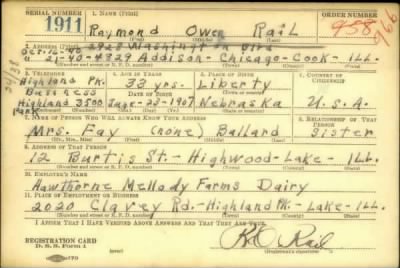 SERIAL NUMBER 1. NAME (Print) ORDER NUMBER
1911 Raymond Owen Rail 958
2. ADDRESS (Print)
Oct-16-40 2928 Washington Blvd
21-40-4829 Addison-Chicago-Cook-ILL.
3. TELEPHONE 4. AGE IN YEARS 5. PLACE OF BIRTH 6. COUNTRY OF CITIZENSHIP
Highland Pk. 33 yrs. Liberty
Business DATE OF BIRTH
Highland 3500 June-23-1907 Nebraska U.S.A.
Park
7. NAME OF PERSON WHO WILL ALWAYS KNOW YOUR ADDRESS 8. RELATIONSHIP OF THAT PERSON
Mrs. Fay (none) Ballard Sister
(Mr., Mrs., Miss) (First) (Middle) (Last)
9. ADDRESS OF THAT PERSON
12 Burtis St.-Highwood-Lake-ILL.
(Number and street or R. F. D. number) (Town) (County) (State)
10. EMPLOYER'S NAME
Hawthorne Mellody Farms Dairy
11. PLACE OF EMPLOYMENT OR BUSINESS
2020 Clavey Rd.-Highland Pk-Lake-ILL.
(Number and street or R. F. D. number) (Town) (County) (State)
I AFFIRM THAT I HAVE VERIFIED ABOVE ANSWERS AND THAT THEY ARE TRUE.
REGISTRATION CARD
D. S. S. Form 1
R O Rail
(Registrant's signature)